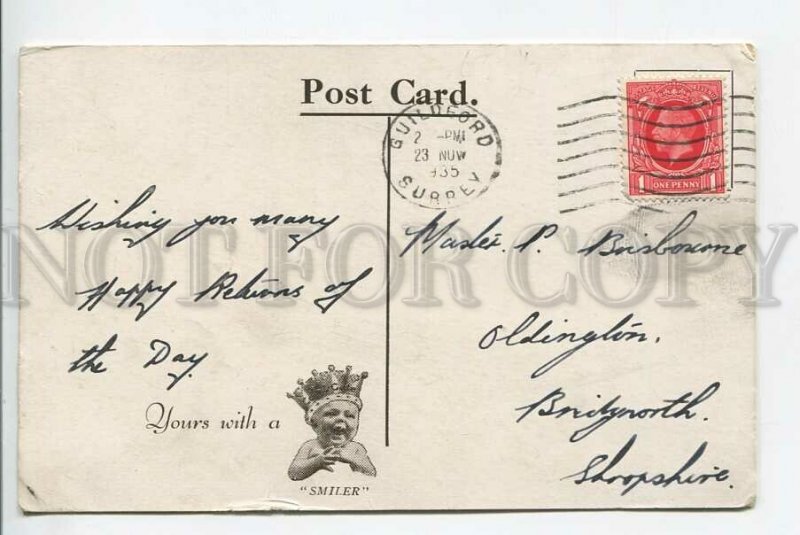 Post Card.
GUILDFORD
2 -PM
23 NOV
1935
SURREY
ONE PENNY
1 1
Wishing you many
Happy Returns of
the Day.
Yours with a
"SMILER"
Master. P. Brisbourne
Oldington.
Bridgnorth.
Shropshire.
NOT FOR COPY